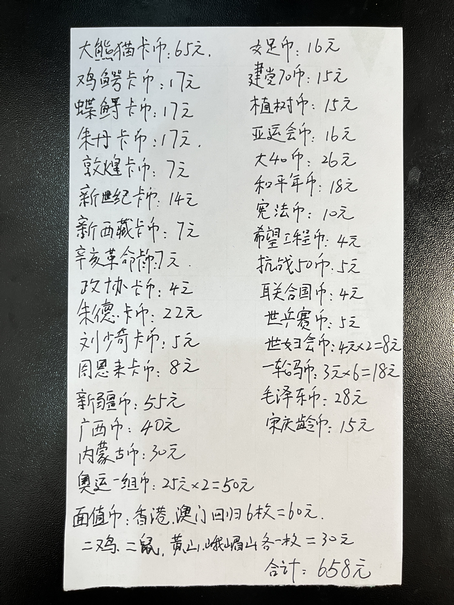 大熊猫卡币:65元.
鸡鳄卡币:17元
蝶鳄卡币:17元
朱丹卡币:17元.
敦煌卡币:7元
新世纪卡币:14元
新西藏卡币:7元
辛亥革命卡币:7元.
政协卡币:4元
朱德.卡币:22元
刘少奇卡币:5元
周恩来卡币:8元
新疆币:55元
广西币:40元
内蒙古币:30元
奥运一组币:25元×2=50元
女足币:16元
建党70币:15元
植树币:15元
亚运会币:16元
大40币:26元
和平年币:18元
宪法币:10元
希望工程币:4元
抗战50币:5元
联合国币:4元
世乒赛币:5元
世妇会币:4元×2=8元
一轮码币:3元×6=18元
毛泽东币:28元
宋庆龄币:15元
面值币:香港,澳门回归6枚=60元.
二鸡.二鼠,黄山.峨嵋山各一枚=30元
合计:658元